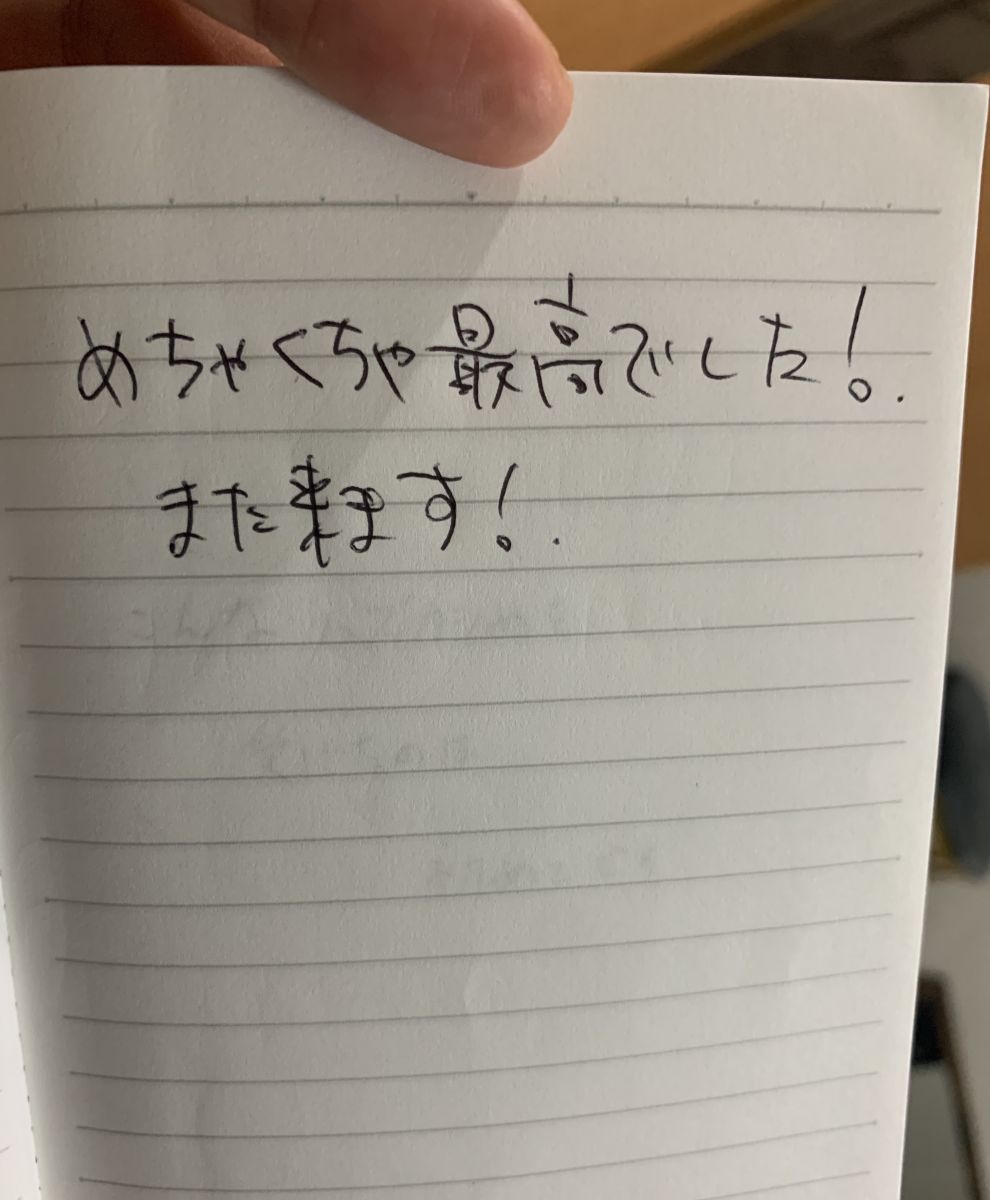 めちゃくちゃ最高でした!.
また来ます!.